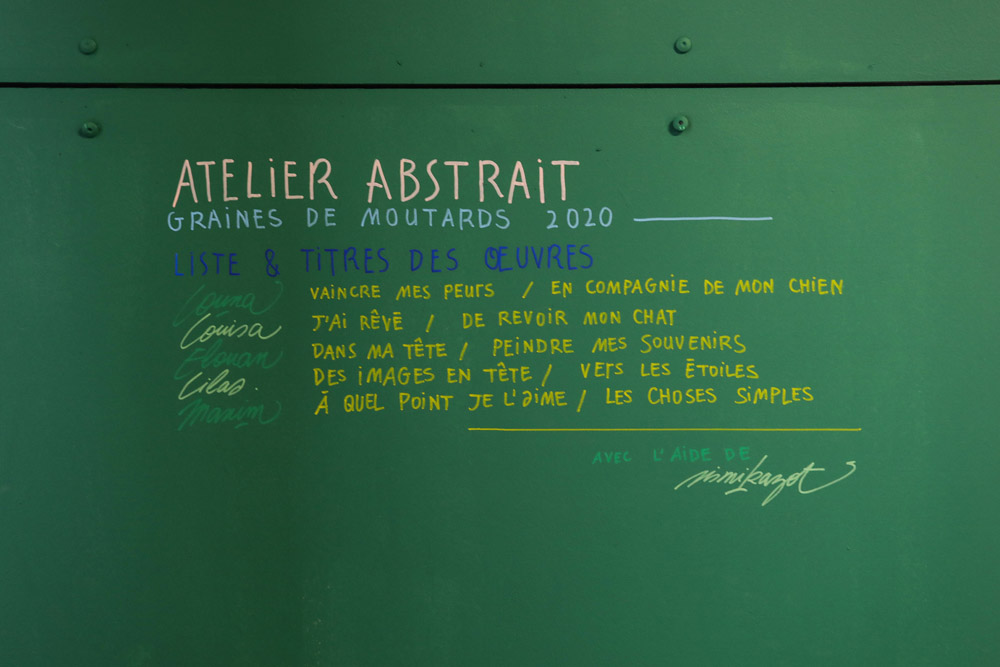 ATELIER ABSTRAIT
GRAINES DE MOUTARDS 2020
LISTE & TITRES DES ŒUVRES
Louna VAINCRE MES PEURS / EN COMPAGNIE DE MON CHIEN
Louisa J'AI RÊVÉ / DE REVOIR MON CHAT
Elouan DANS MA TÊTE / PEINDRE MES SOUVENIRS
Lilas. DES IMAGES EN TÊTE / VERS LES ÉTOILES
Maxim À QUEL POINT JE L'AIME / LES CHOSES SIMPLES
AVEC L'AIDE DE
sismikazot